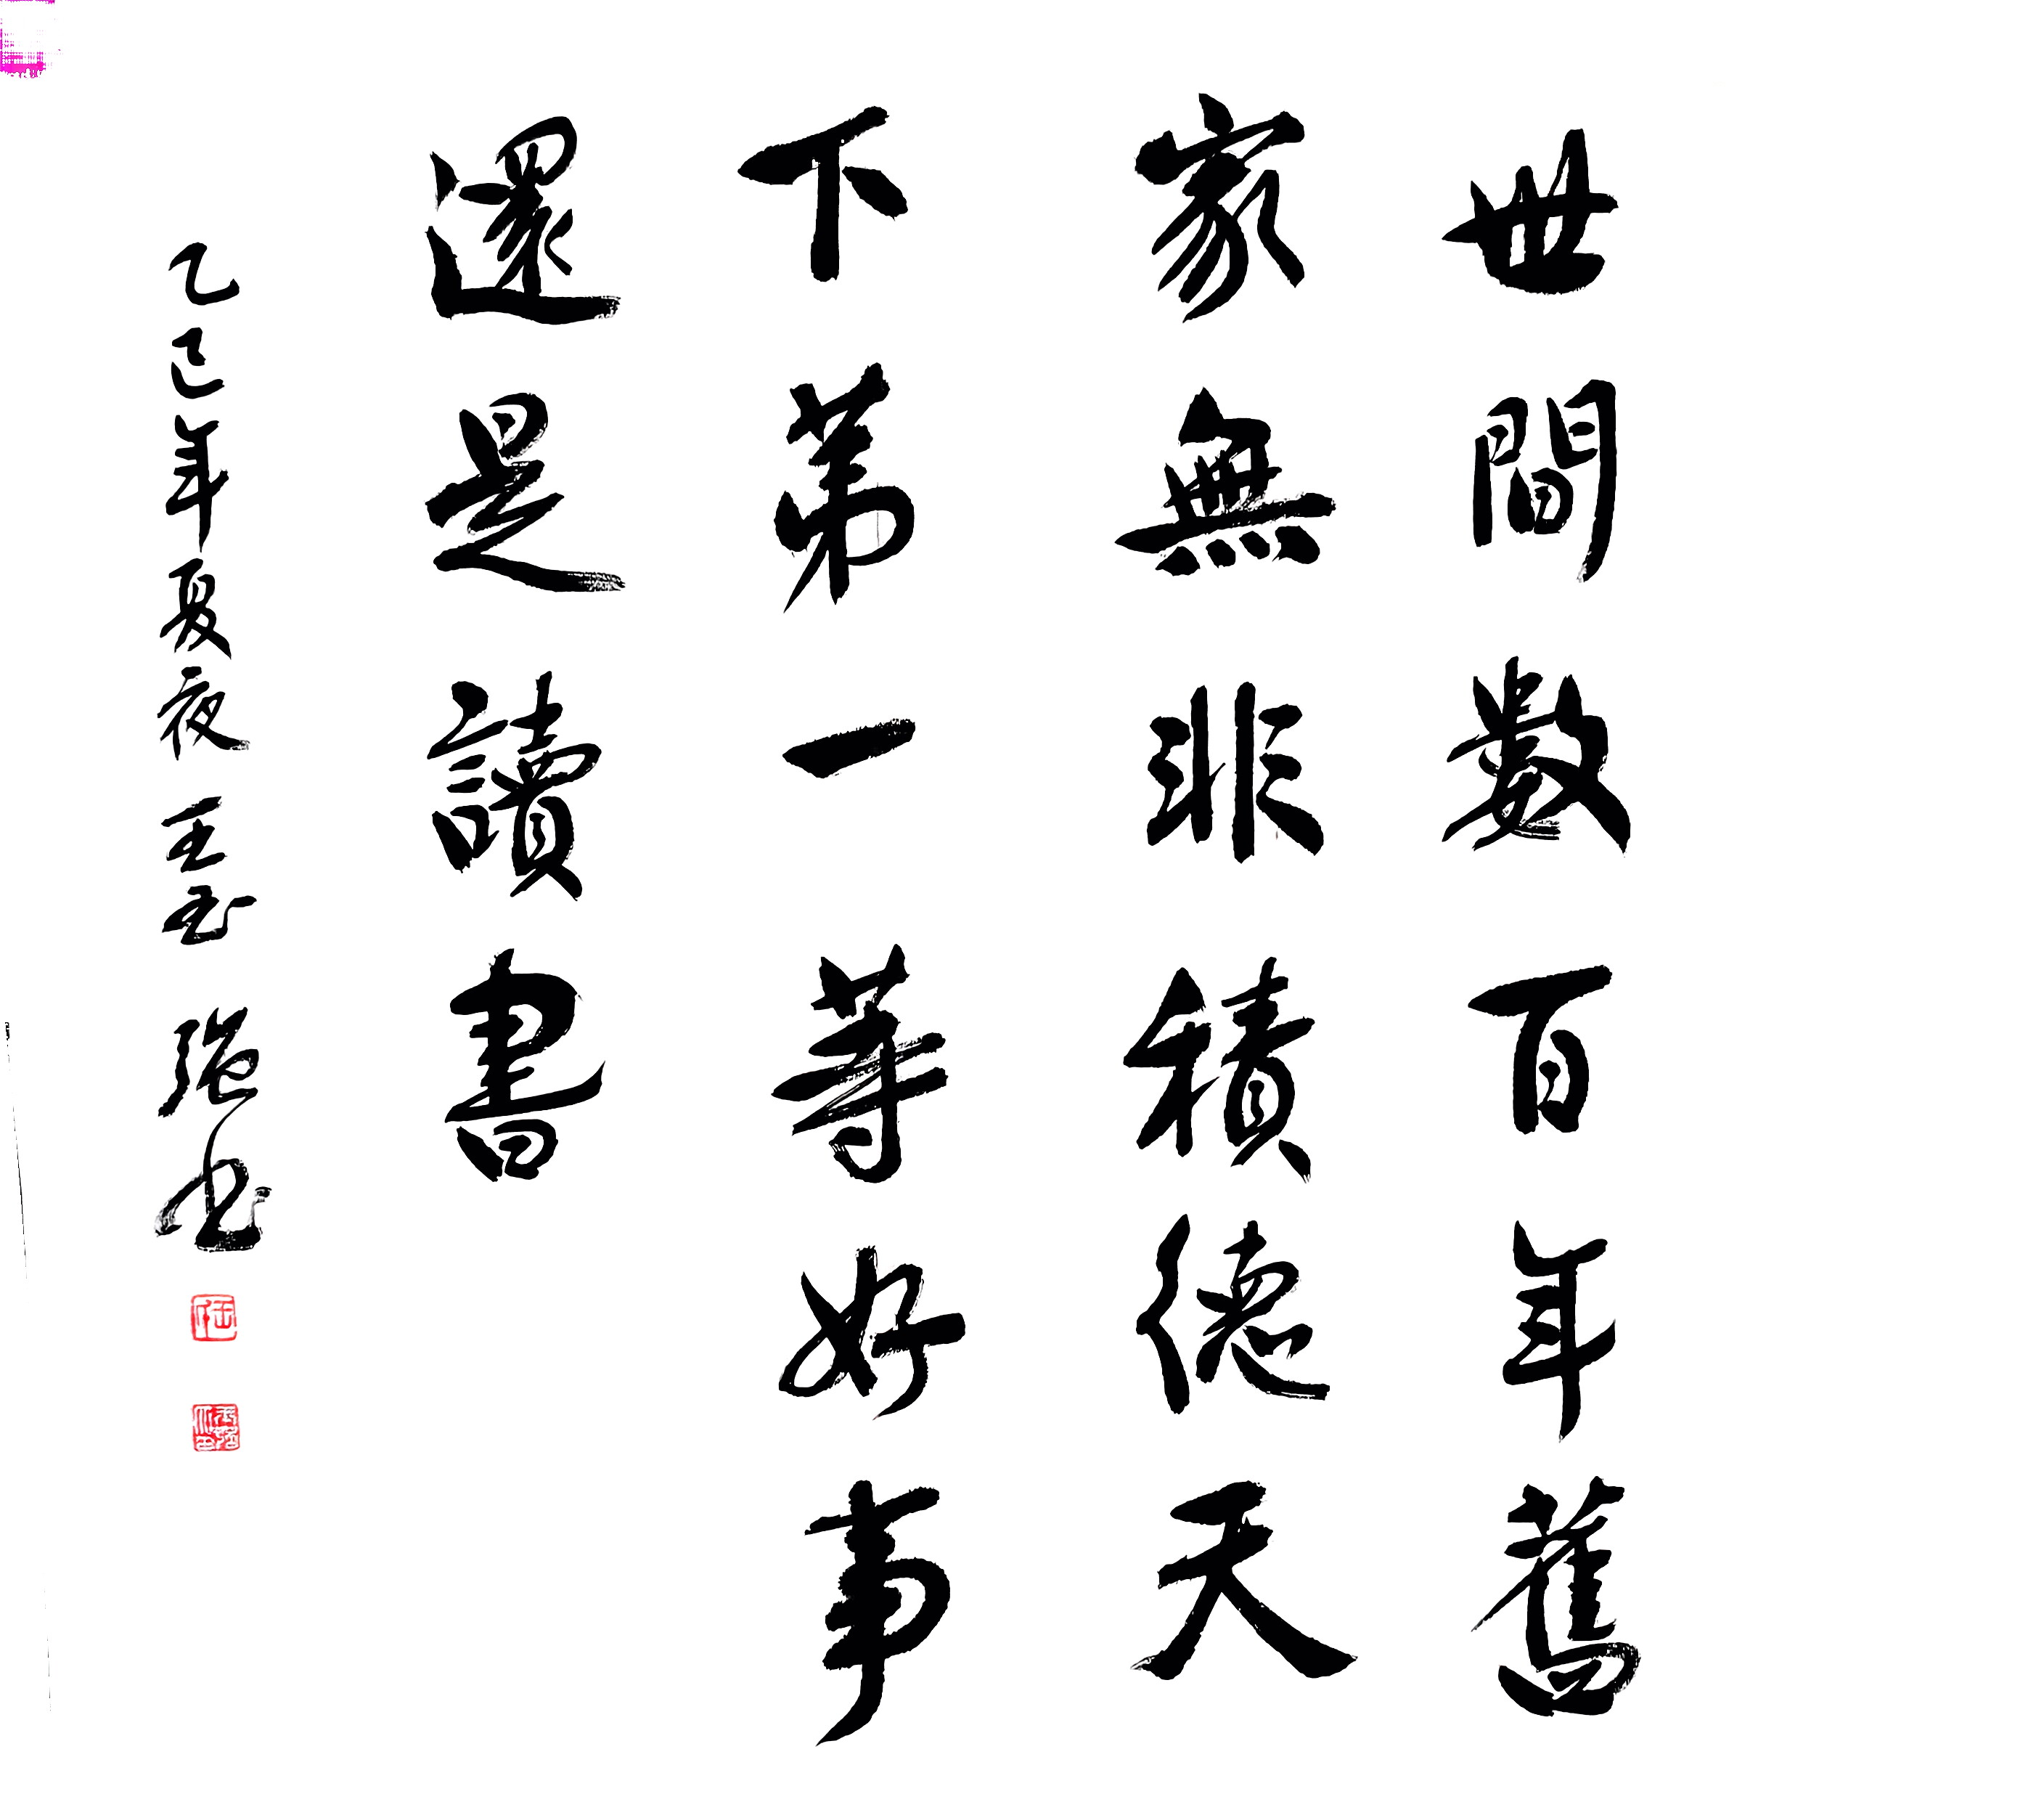 世間數百年舊
家無非積德天
下第一等好事
還是讀書
乙巳年夏夜